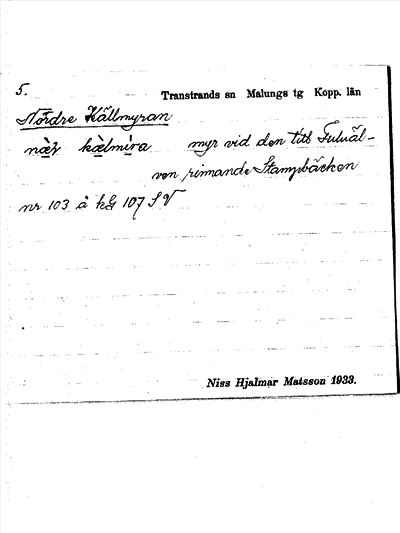 5.
Transtrands sn Malungs tg Kopp. län
Nordre Källmyran
kælmira myr vid den till Fuluäl-
ven rinnande Stampbäcken
nr 103 å kG 107 SV
Niss Hjalmar Matsson 1933.